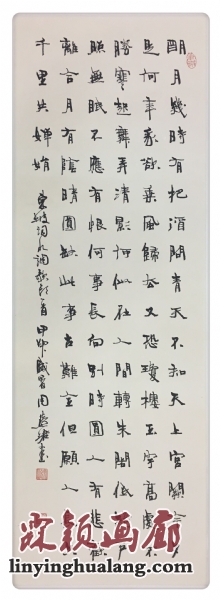 明月幾時有把酒問青天不知天上宮闕今夕
是何年我欲乘風歸去又恐瓊樓玉宇高處不
勝寒起舞弄清影何似在人間轉朱閣低戶
照無眠不應有恨何事長向別時圓人有悲歡
離合月有陰晴圓缺此事古難全但願人
千里共嬋娟
東坡詞水調歌頭一首
霖颖画廊
linyinghualang.com